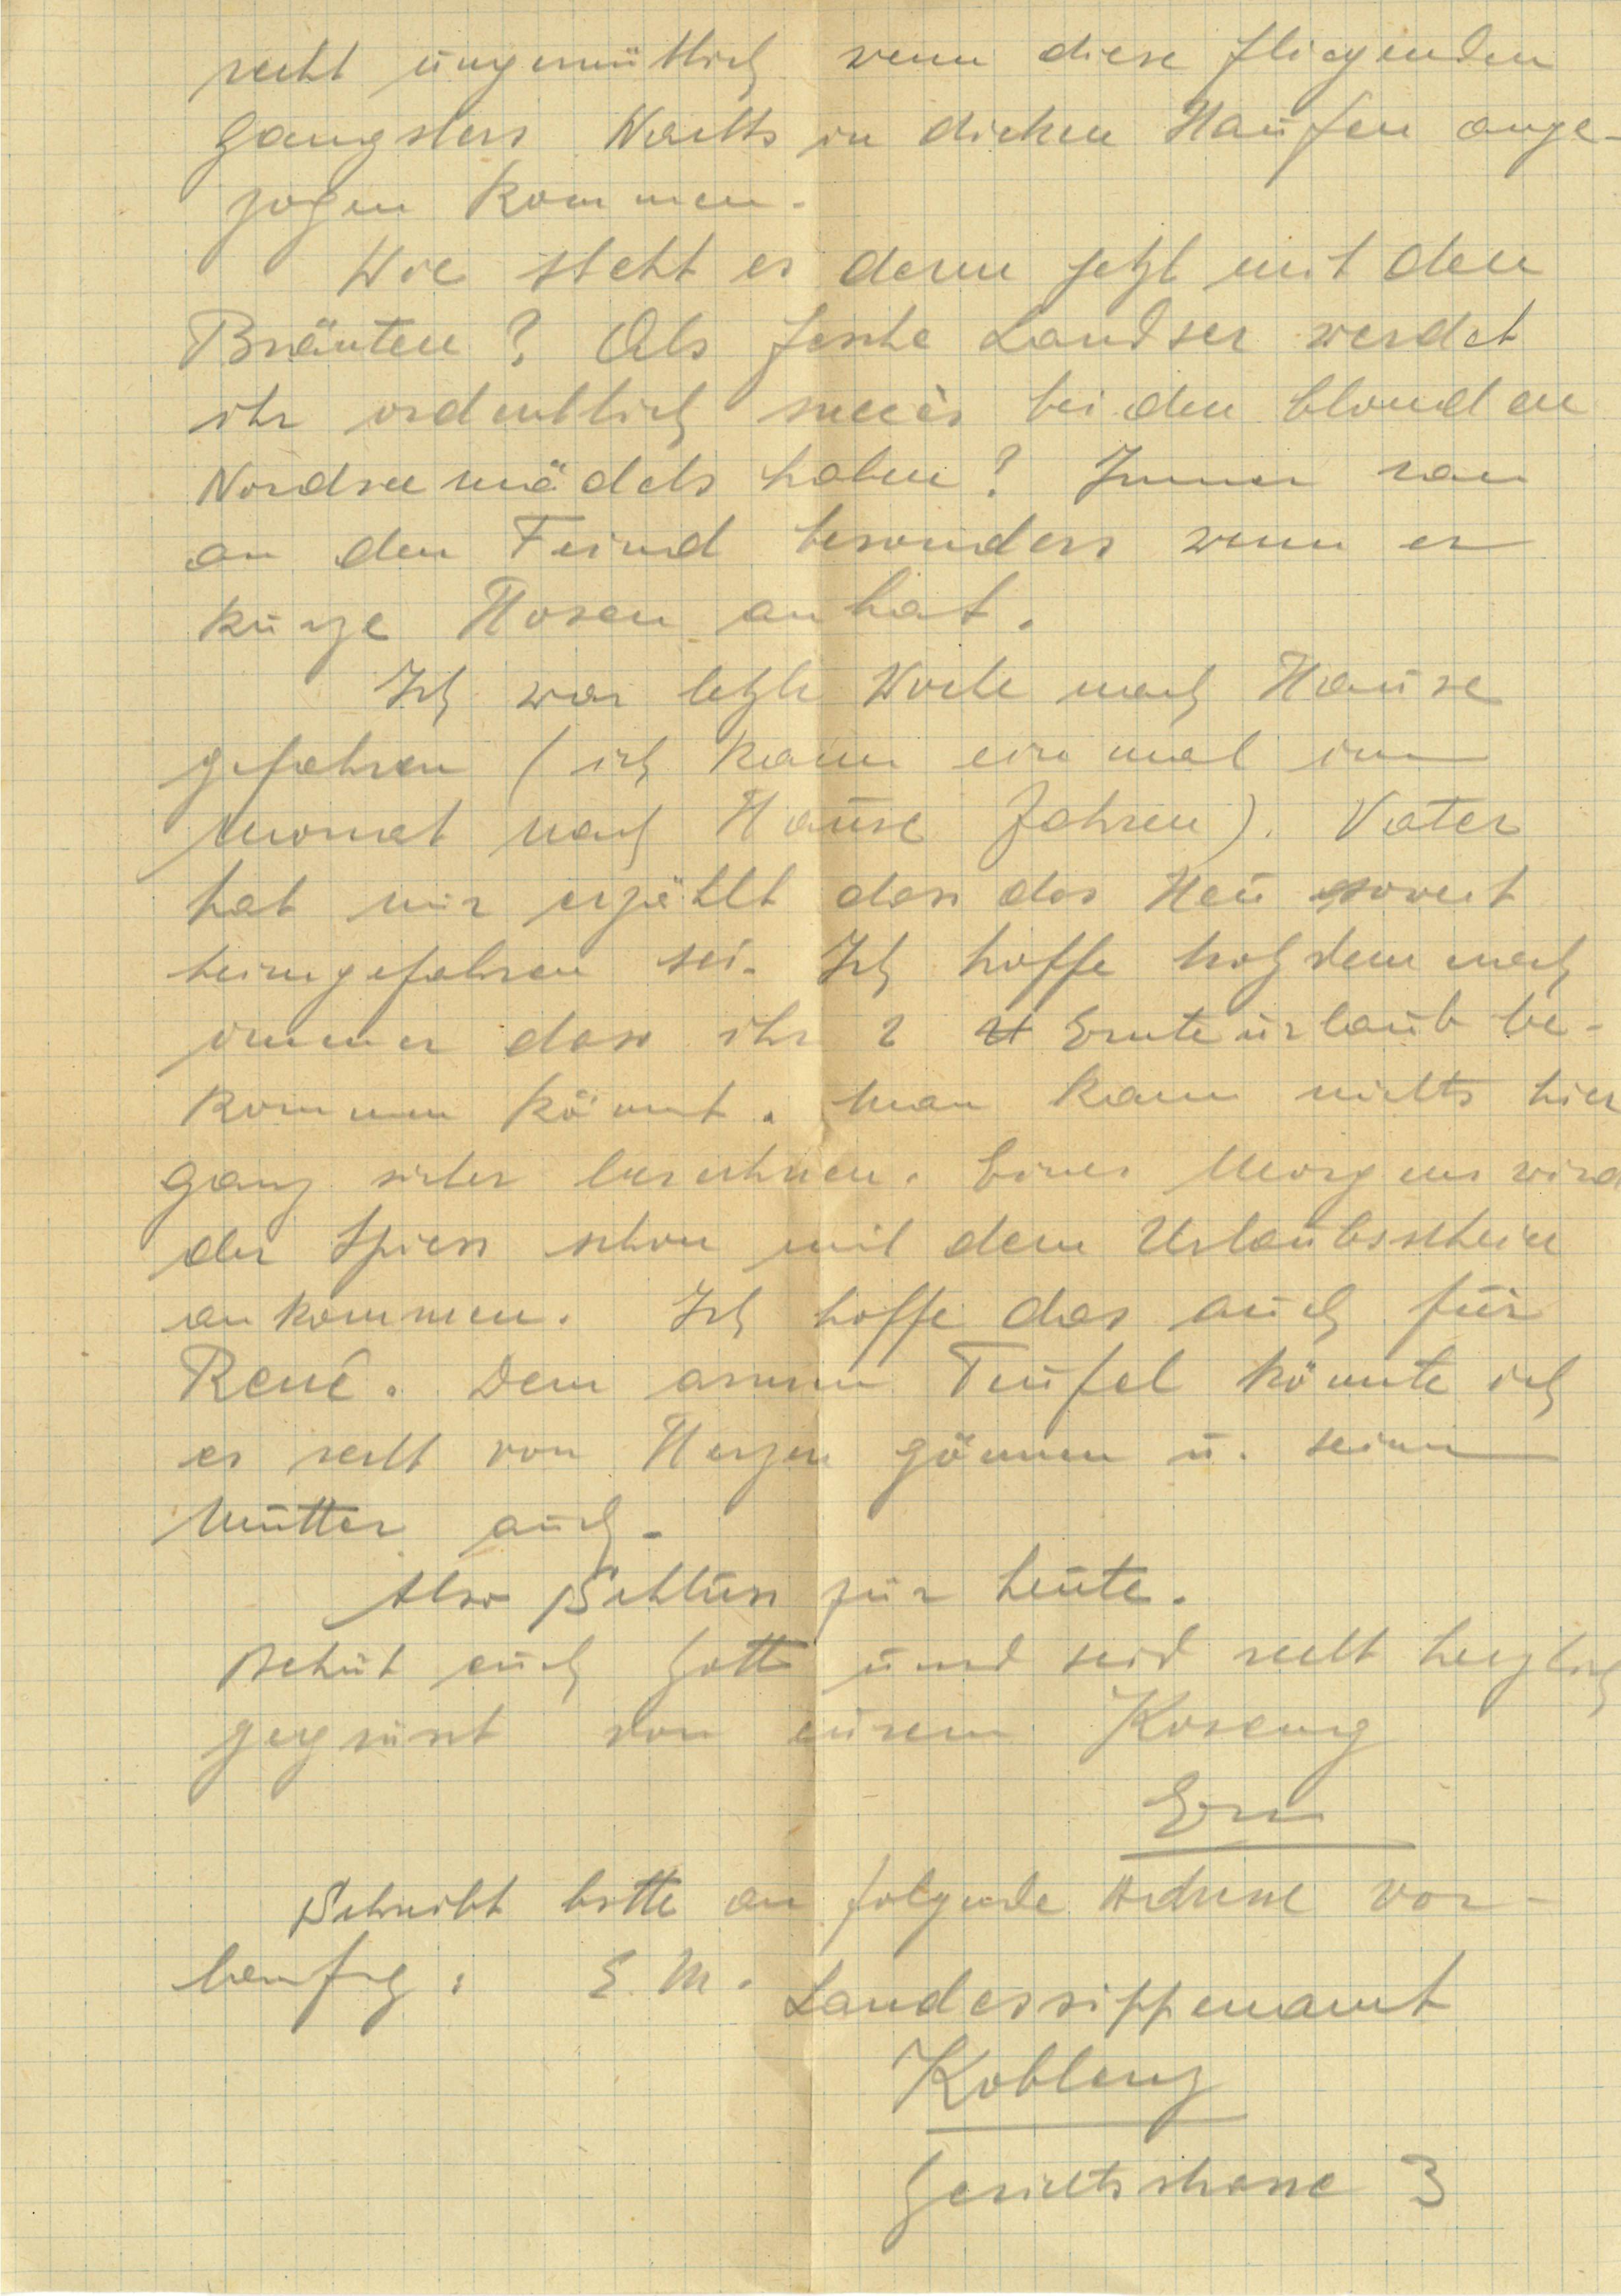 recht ungemütlich wenn diese fliegenden
Gangsters Nachts in dicken Haufen ange-
zogen kommen.
Wie steht es denn jetzt mit den
Bräuten? Als fesche Landser werdet
ihr ordentlich succès bei den blonden
Nordseemädels haben? Immer ran
an den Feind besonders wenn er
kurze Hosen anhat.
Ich war letzte Woche nach Hause
gefahren (ich kann einmal im
Monat nach Hause fahren). Vater
hat mir erzählt dass das Heu soweit
heimgefahren sei. Ich hoffe trotzdem noch
immer dass ihr 2 Ernteurlaub be-
kommen könnt. Man kann nichts hier
ganz sicher berechnen. Eines Morgens wird
der Spiess schon mit dem Urlaubsschein
ankommen. Ich hoffe das auch für
René. Dem armen Teufel könnte ich
es recht von Herzen gönnen u. seiner
Mutter auch.
Also Schluss für heute.
Behüt euch Gott und seid recht herzlich
gegrüsst von eurem Koseng
Schreibt bitte an folgende Adresse vor-
laeufig: E. M. Landessippenamt
Koblenz
Gerichtsstrasse 3